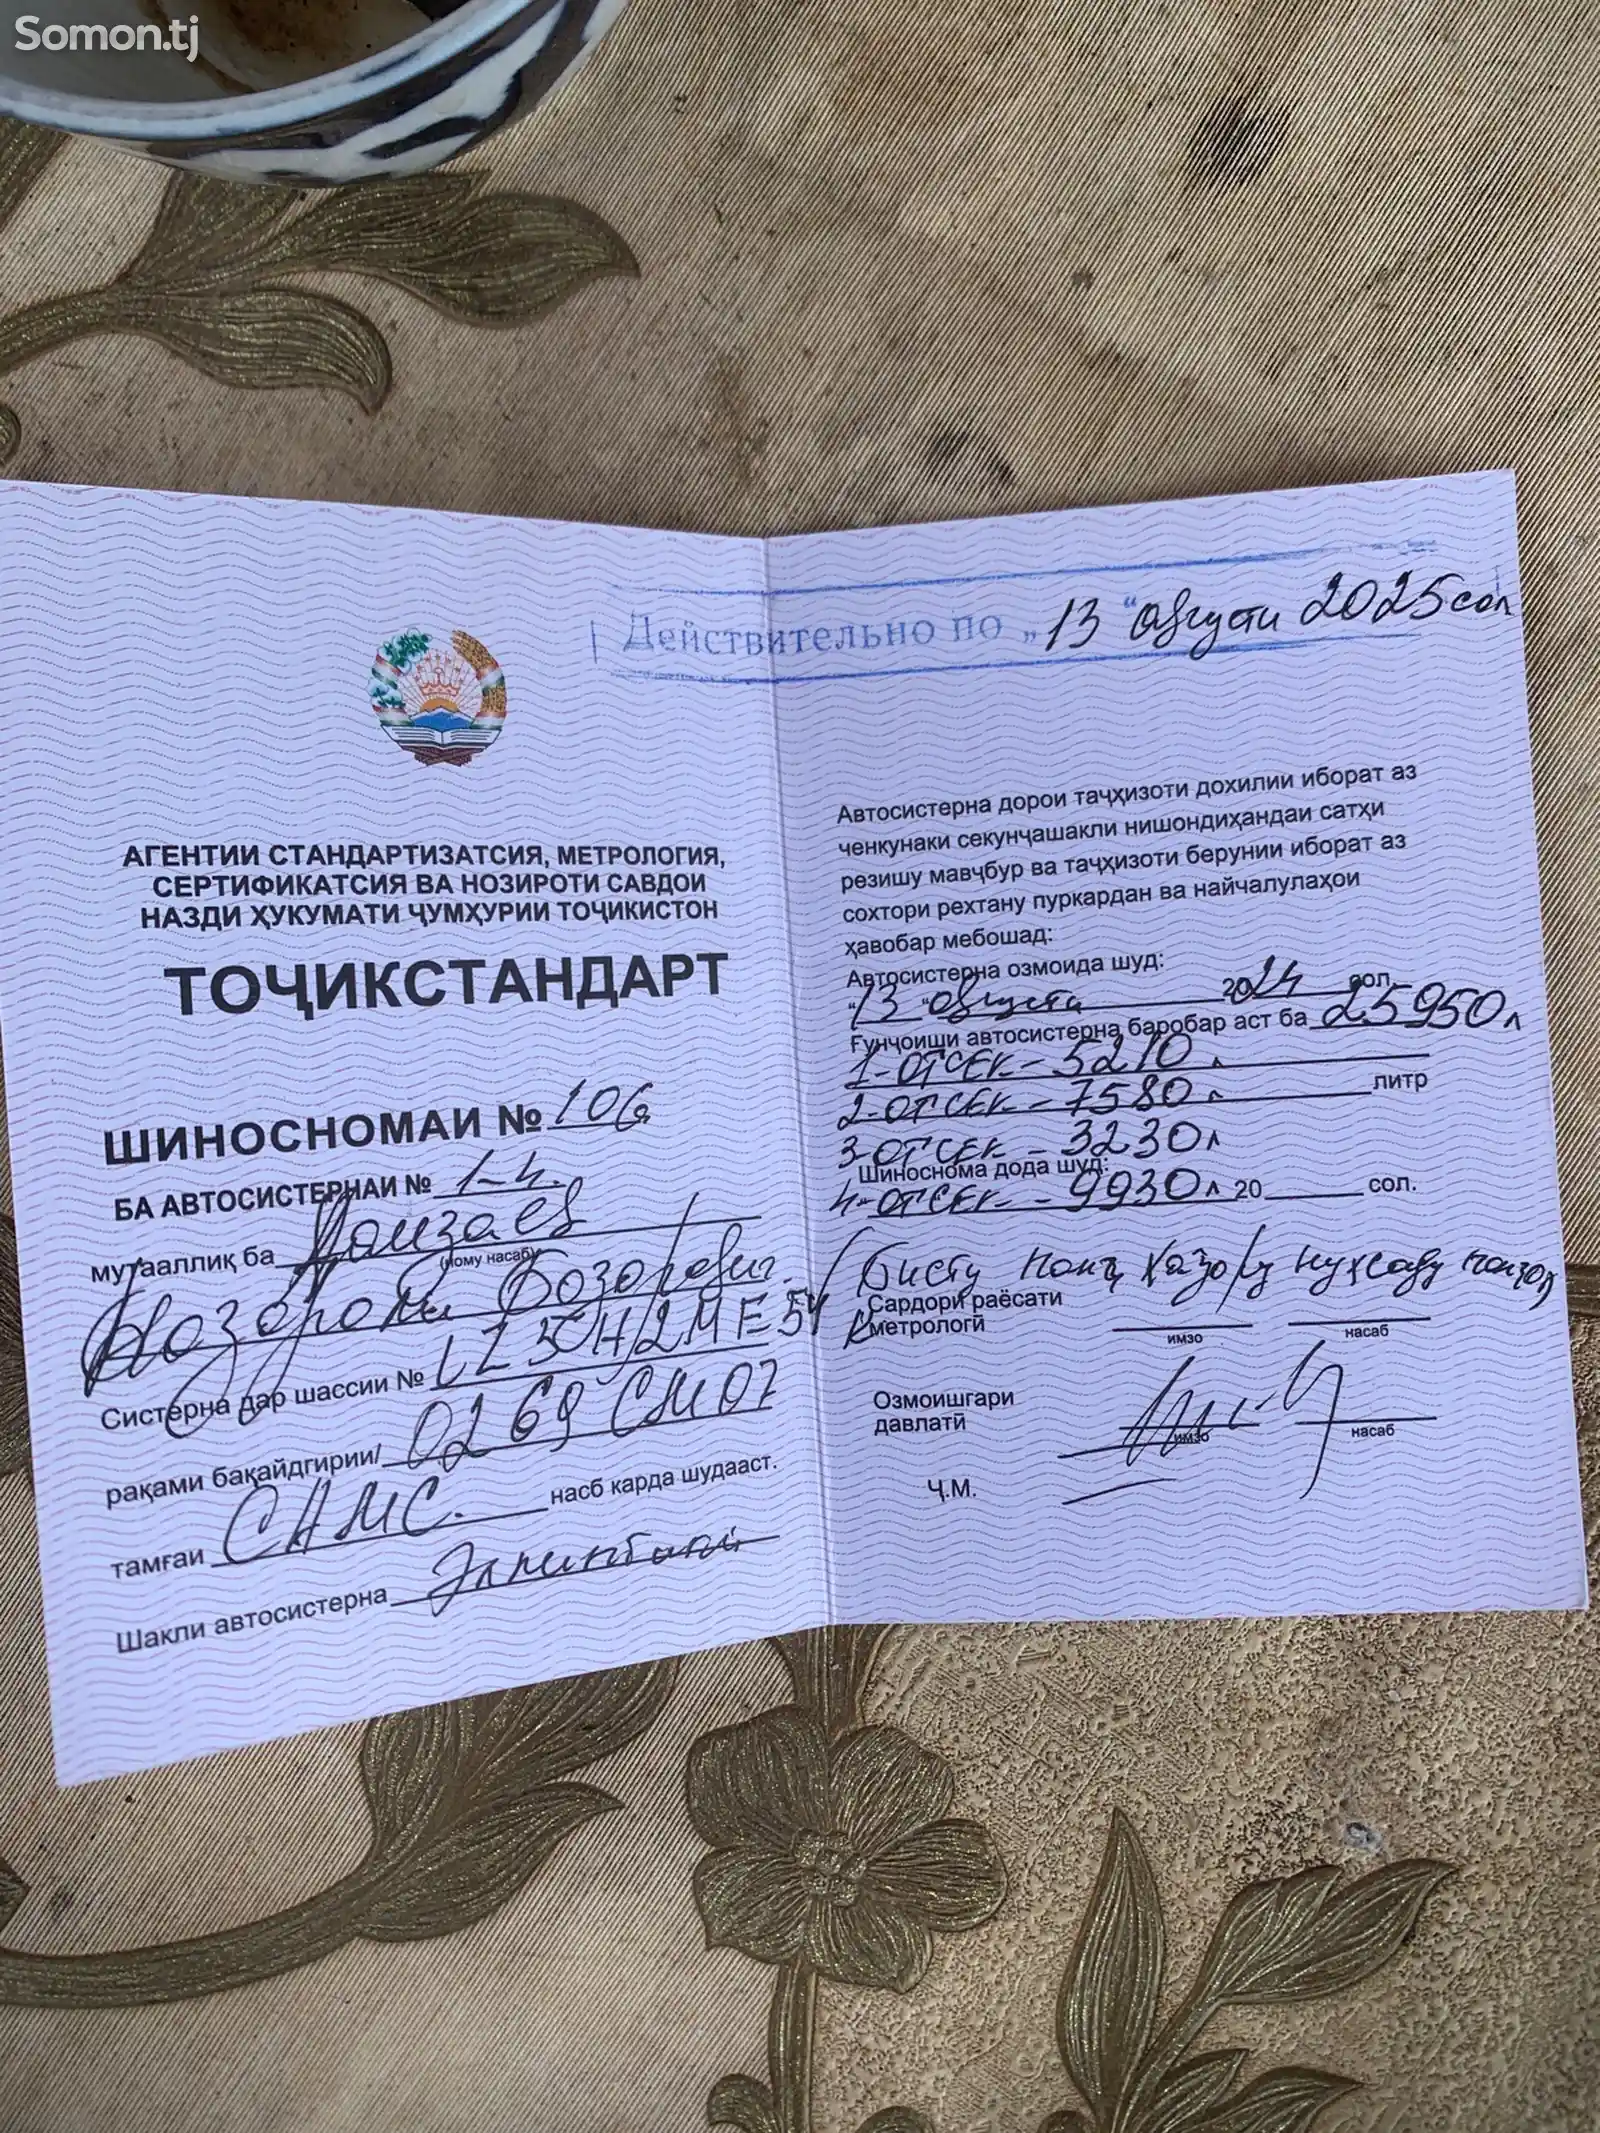 Somon.tj
Действительно по „13“ Августи 2025 сол
АГЕНТИИ СТАНДАРТИЗАТСИЯ, МЕТРОЛОГИЯ,
СЕРТИФИКАТСИЯ ВА НОЗИРОТИ САВДОИ
НАЗДИ ҲУКУМАТИ ҶУМҲУРИИ ТОҶИКИСТОН
ТОҶИКСТАНДАРТ
ШИНОСНОМАИ № 106
БА АВТОСИСТЕРНАИ № 1-4.
мутааллиқ ба
(ному насабу
Систерна дар шассии №
рақами бақайдгирии/ 0269 СМ 07
тамғаи САМС. насб карда шудааст.
Шакли автосистерна
Автосистерна дорои таҷҳизоти дохилии иборат аз
ченкунаки секунҷашакли нишондиҳандаи сатҳи
резишу мавҷбур ва таҷҳизоти берунии иборат аз
сохтори рехтану пуркардан ва найчалулаҳои
ҳавобар мебошад:
Автосистерна озмоида шуд:
"13" Августи 2024 сол.
Ғунҷоиши автосистерна баробар аст ба 25950 л
1-ОТСЕК - 5210 л
2-ОТСЕК - 7580 л литр
3-ОТСЕК - 3230 л
Шиноснома дода шуд:
4-ОТСЕК - 9930 л 20 сол.
Бисту панҷ ҳазору нуҳсаду панҷоҳ
Сардори раёсати
метрологӣ
имзо насаб
Озмоишгари
давлатӣ
имзо насаб
Ҷ.М.